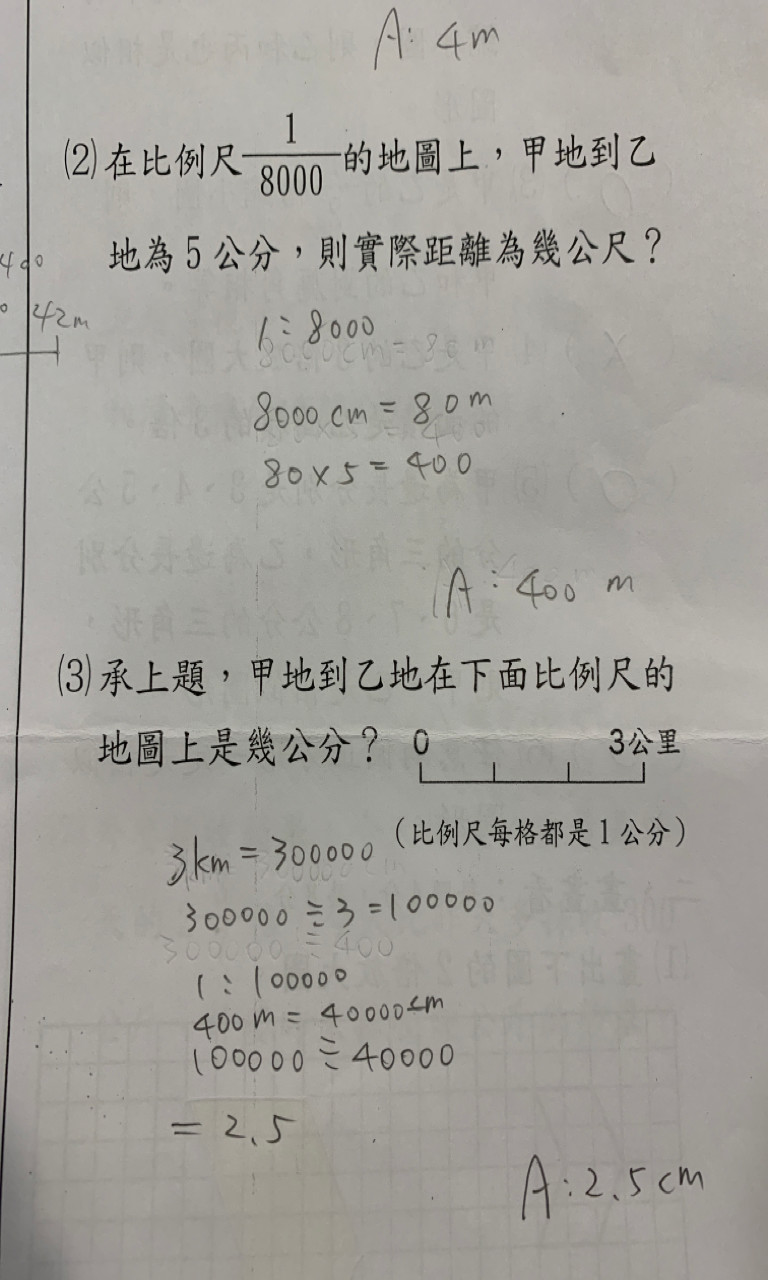 A: 4m
(2)在比例尺 1/8000 的地圖上，甲地到乙
地為5公分，則實際距離為幾公尺？
42m
1:8000
8000 cm = 80 m
80×5 = 400
A: 400 m
(3)承上題，甲地到乙地在下面比例尺的
地圖上是幾公分？ 0 3公里
（比例尺每格都是1公分）
3km = 300000
300000 ÷ 3 = 100000
300000 ÷ 400
1: 100000
400 m = 40000 cm
100000 ÷ 40000
= 2.5
A: 2.5 cm